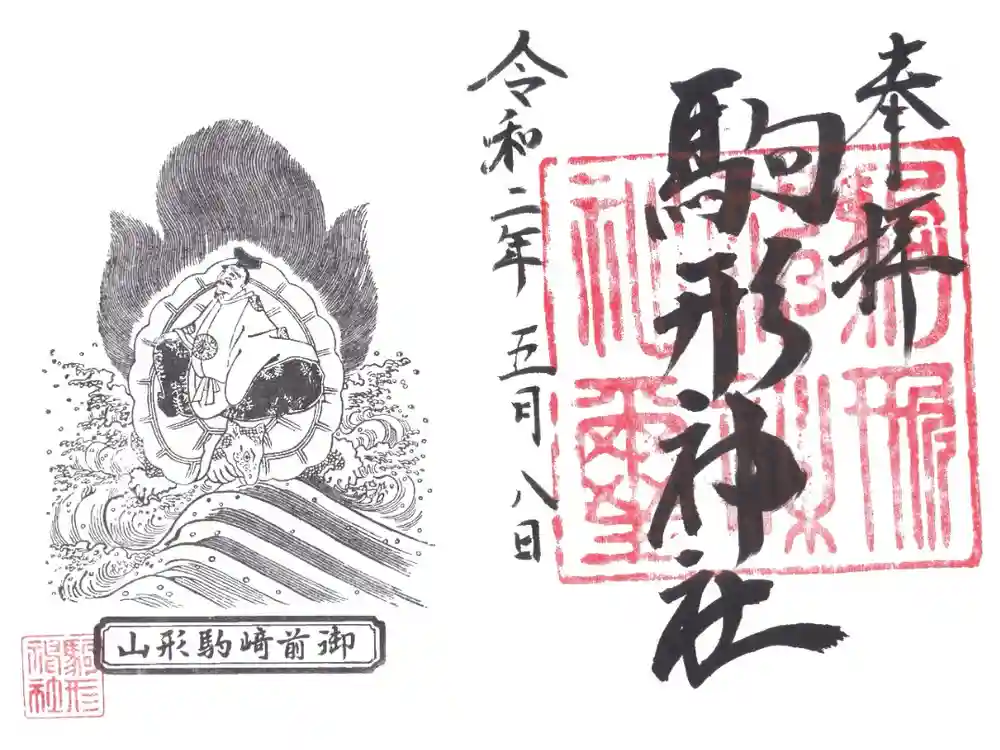 奉拝
駒形神社
令和二年 五月八日
御前崎駒形山
駒形
神社